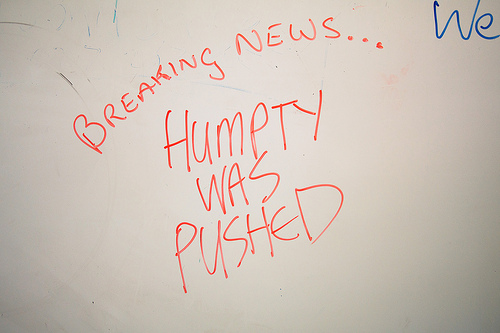 BREAKING NEWS...
HUMPTY
WAS
PUSHED
We